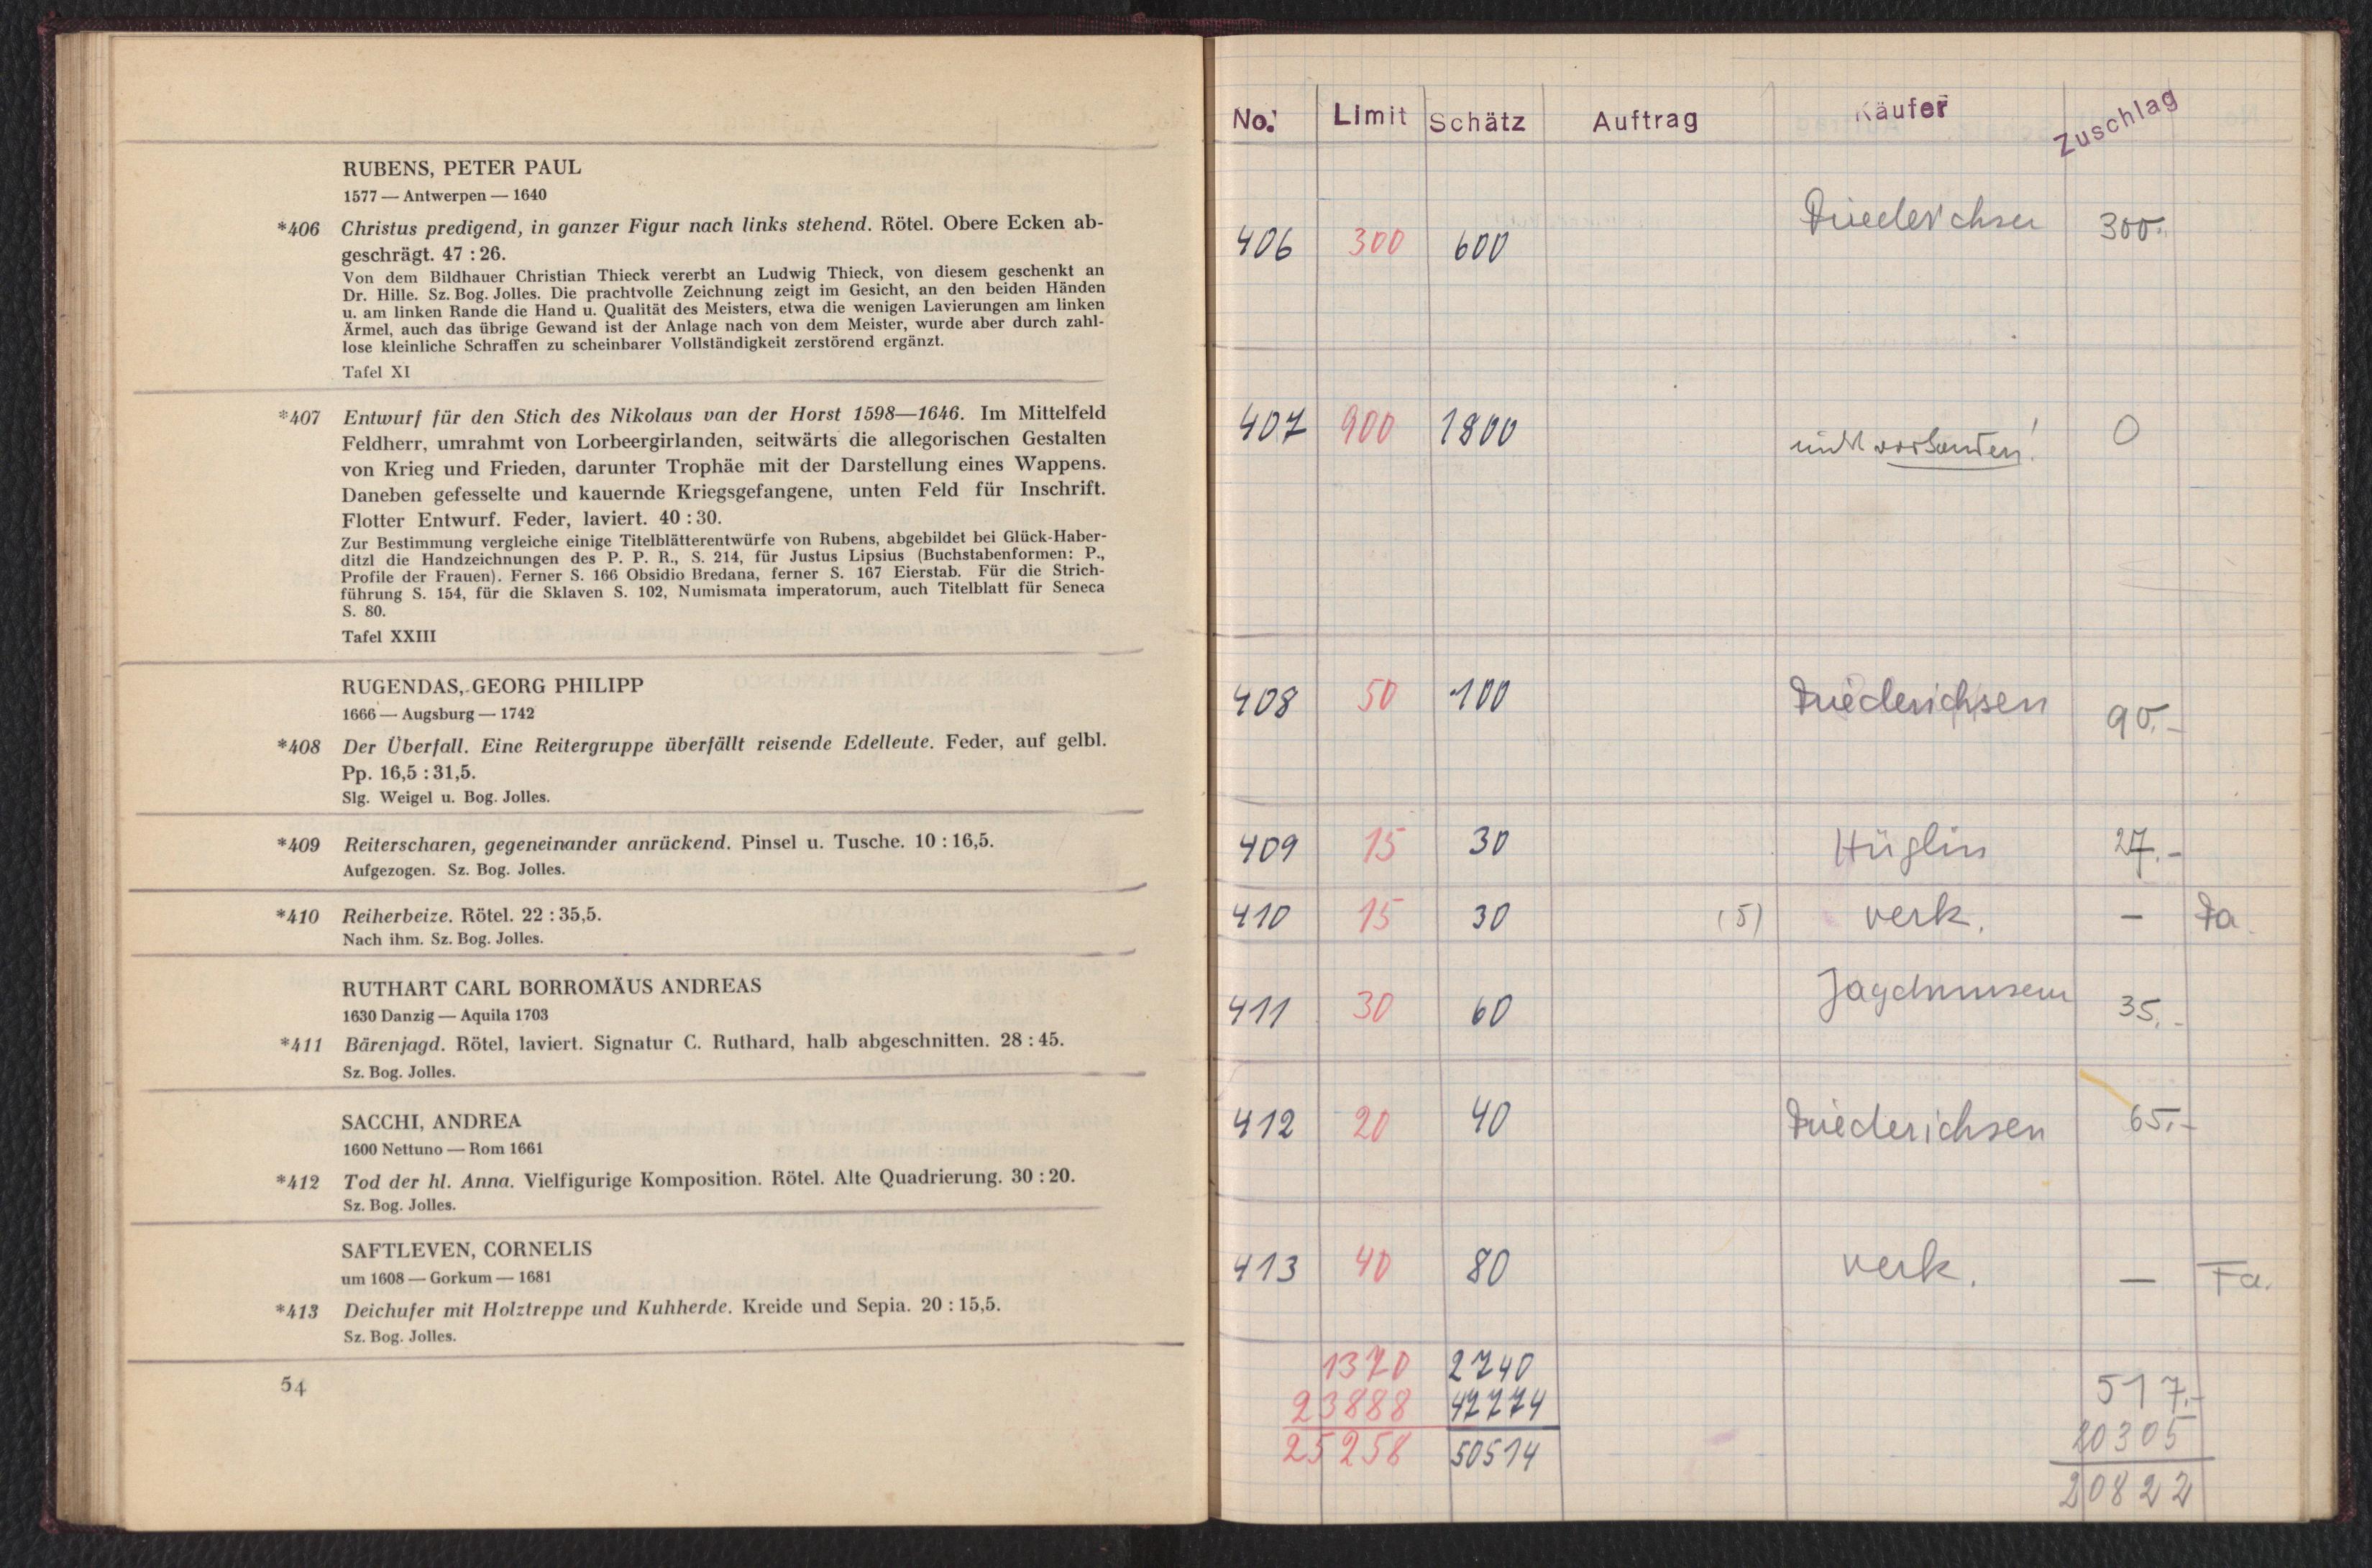 RUBENS, PETER PAUL
1577 — Antwerpen — 1640
*406 Christus predigend, in ganzer Figur nach links stehend. Rötel. Obere Ecken ab-
geschrägt. 47 : 26.
Von dem Bildhauer Christian Thieck vererbt an Ludwig Thieck, von diesem geschenkt an
Dr. Hille. Sz. Bog. Jolles. Die prachtvolle Zeichnung zeigt im Gesicht, an den beiden Händen
u. am linken Rande die Hand u. Qualität des Meisters, etwa die wenigen Lavierungen am linken
Ärmel, auch das übrige Gewand ist der Anlage nach von dem Meister, wurde aber durch zahl-
lose kleinliche Schraffen zu scheinbarer Vollständigkeit zerstörend ergänzt.
Tafel XI
*407 Entwurf für den Stich des Nikolaus van der Horst 1598—1646. Im Mittelfeld
Feldherr, umrahmt von Lorbeergirlanden, seitwärts die allegorischen Gestalten
von Krieg und Frieden, darunter Trophäe mit der Darstellung eines Wappens.
Daneben gefesselte und kauernde Kriegsgefangene, unten Feld für Inschrift.
Flotter Entwurf. Feder, laviert. 40 : 30.
Zur Bestimmung vergleiche einige Titelblätterentwürfe von Rubens, abgebildet bei Glück-Haber-
ditzl die Handzeichnungen des P. P. R., S. 214, für Justus Lipsius (Buchstabenformen: P.,
Profile der Frauen). Ferner S. 166 Obsidio Bredana, ferner S. 167 Eierstab. Für die Strich-
führung S. 154, für die Sklaven S. 102, Numismata imperatorum, auch Titelblatt für Seneca
S. 80.
Tafel XXIII
RUGENDAS, GEORG PHILIPP
1666 — Augsburg — 1742
*408 Der Überfall. Eine Reitergruppe überfällt reisende Edelleute. Feder, auf gelbl.
Pp. 16,5 : 31,5.
Slg. Weigel u. Bog. Jolles.
*409 Reiterscharen, gegeneinander anrückend. Pinsel u. Tusche. 10 : 16,5.
Aufgezogen. Sz. Bog. Jolles.
*410 Reiherbeize. Rötel. 22 : 35,5.
Nach ihm. Sz. Bog. Jolles.
RUTHART CARL BORROMÄUS ANDREAS
1630 Danzig — Aquila 1703
*411 Bärenjagd. Rötel, laviert. Signatur C. Ruthard, halb abgeschnitten. 28 : 45.
Sz. Bog. Jolles.
SACCHI, ANDREA
1600 Nettuno — Rom 1661
*412 Tod der hl. Anna. Vielfigurige Komposition. Rötel. Alte Quadrierung. 30 : 20.
Sz. Bog. Jolles.
SAFTLEVEN, CORNELIS
um 1608 — Gorkum — 1681
*413 Deichufer mit Holztreppe und Kuhherde. Kreide und Sepia. 20 : 15,5.
Sz. Bog. Jolles.
54
No. Limit Schätz Auftrag Käufer Zuschlag
406 300 600 Diederichsen 300.-
407 900 1800 nicht vorhanden! 0
408 50 100 Diederichsen 90.-
409 15 30 Hüglin 27.-
410 15 30 (5) verk. -
411 30 60 Jagdmuseum 35.-
412 20 40 Diederichsen 65.-
413 40 80 verk. — Fa.
1370 2740 517.-
23888 47774 20305
25258 50514 20822